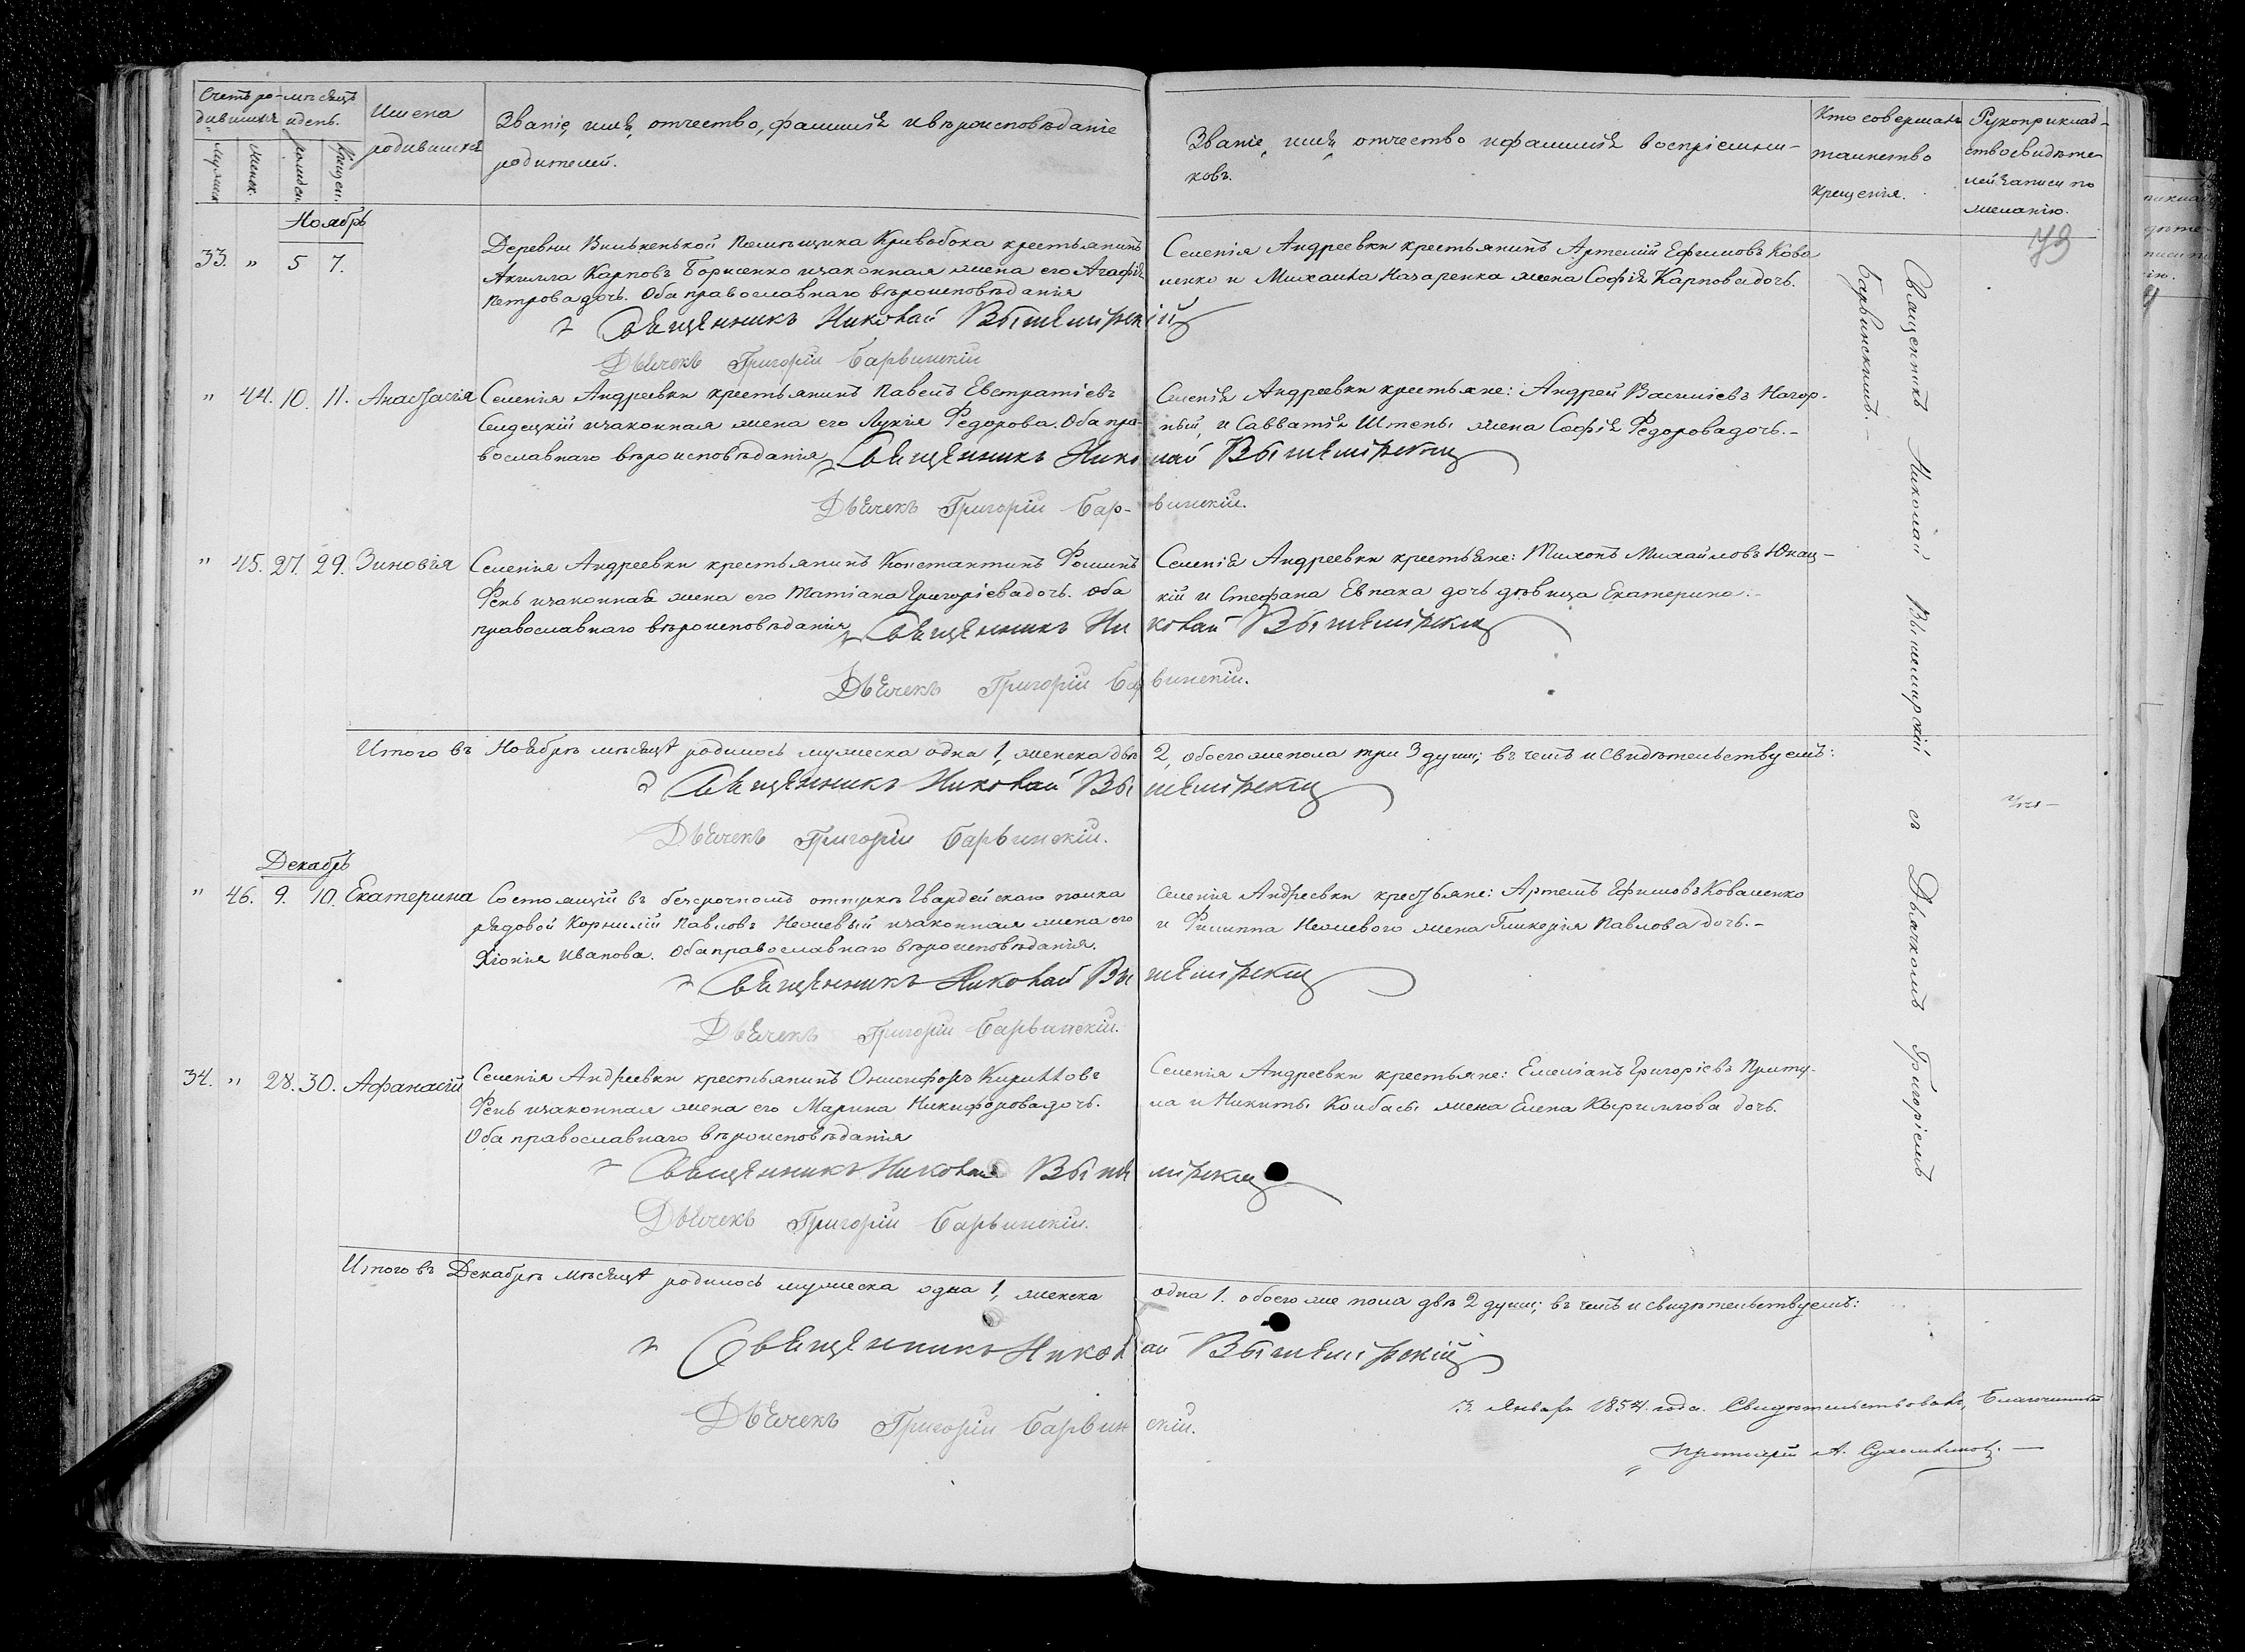 Счетъ ро-
дившихся
мѣсяцъ
и день.
Имена
родившихся
Званіе, имя, отчество, фамилія и вѣроисповѣданіе
родителей.
Званіе, имя, отчество и фамилія воспріемни-
ковъ.
Кто совершалъ
таинство
крещенія.
Рукоприклад-
ство свидѣте-
лей записи по
желанію.
мужеск
женск.
рожден.
крещен.
79
Ноябрь
33. " 5 7.
Деревни Вильненькой помѣщика Кривобока крестьянинъ
Акилла Карповъ Борисенко и законная жена его Агафія
Петрова дочь. Оба православнаго вѣроисповѣданія
Селенія Андреевки крестьянинъ Артемій Ефимовъ Кова
ленко и Михаила Назаренка жена Софія Карпова дочь.
Священникъ Николай Вышемірскій
Дьячекъ Григорій Барвинскій
" 44. 10. 11. Анастасія
Селенія Андреевки крестьянинъ Павелъ Евстратіевъ
Селецкій и законная жена его Лукія Федорова. Оба пра-
вославнаго вѣроисповѣданія
Селенія Андреевки крестьяне: Андрей Василіевъ Нагор-
ный, и Савватія Штепы жена Софія Федорова дочь.-
Священникъ Николай Вышемірскій
Дьячекъ Григорій Бар-винскій.
" 45. 27. 29. Зиновія
Селенія Андреевки крестьянинъ Константинъ Фоминъ
Фень и законная жена его Татіана Григоріева дочь. Оба
православнаго вѣроисповѣданія
Селенія Андреевки крестьяне: Тихонъ Михайловъ Юнац-
кій и Стефана Евпака дочь дѣвица Екатерина.-
Священникъ Николай Вышемірскій
Дьячекъ Григорій Барвинскій.
Итого въ Ноябрѣ мѣсяцѣ родилось мужеска одна 1, женска двѣ 2, обоего же пола три 3 души; въ чемъ и свидѣтельствуемъ:
Священникъ Николай Вышемірскій
Дьячекъ Григорій Барвинскій.
Декабрь
" 46. 9. 10. Екатерина
Состоящій въ безсрочномъ отпуску Гвардейскаго полка
рядовой Корнилій Павловъ Нежевый и законная жена его
Хіонія Иванова. Оба православнаго вѣроисповѣданія.
Селенія Андреевки крестьяне: Артемъ Ефимовъ Коваленко
и Филиппа Нежевого жена Гликерія Павлова дочь.-
Священникъ Николай Вышемірскій
Дьячекъ Григорій Барвинскій.
34. " 28. 30. Афанасій
Селенія Андреевки крестьянинъ Онисифоръ Кирилловъ
Фень и законная жена его Марина Никифорова дочь.
Оба православнаго вѣроисповѣданія
Селенія Андреевки крестьяне: Емеліанъ Григоріевъ Приту-
ла и Никиты Колбасы жена Елена Кириллова дочь.
Священникъ Николай Вышемірскій
Дьячекъ Григорій Барвинскій.
Итого въ Декабрѣ мѣсяцѣ родилось мужеска одна 1, женска одна 1. обоего же пола двѣ 2 души; въ чемъ и свидѣтельствуемъ:
Священникъ Николай Вышемірскій
Дьячекъ Григорій Барвинскій.
Священникъ Николай Вышемирскій съ Дьячкомъ Григоріемъ
Барвинскимъ.-
3. Январь 1854. года. Свидѣтельствовалъ, Благочинный
Протоіерей А.